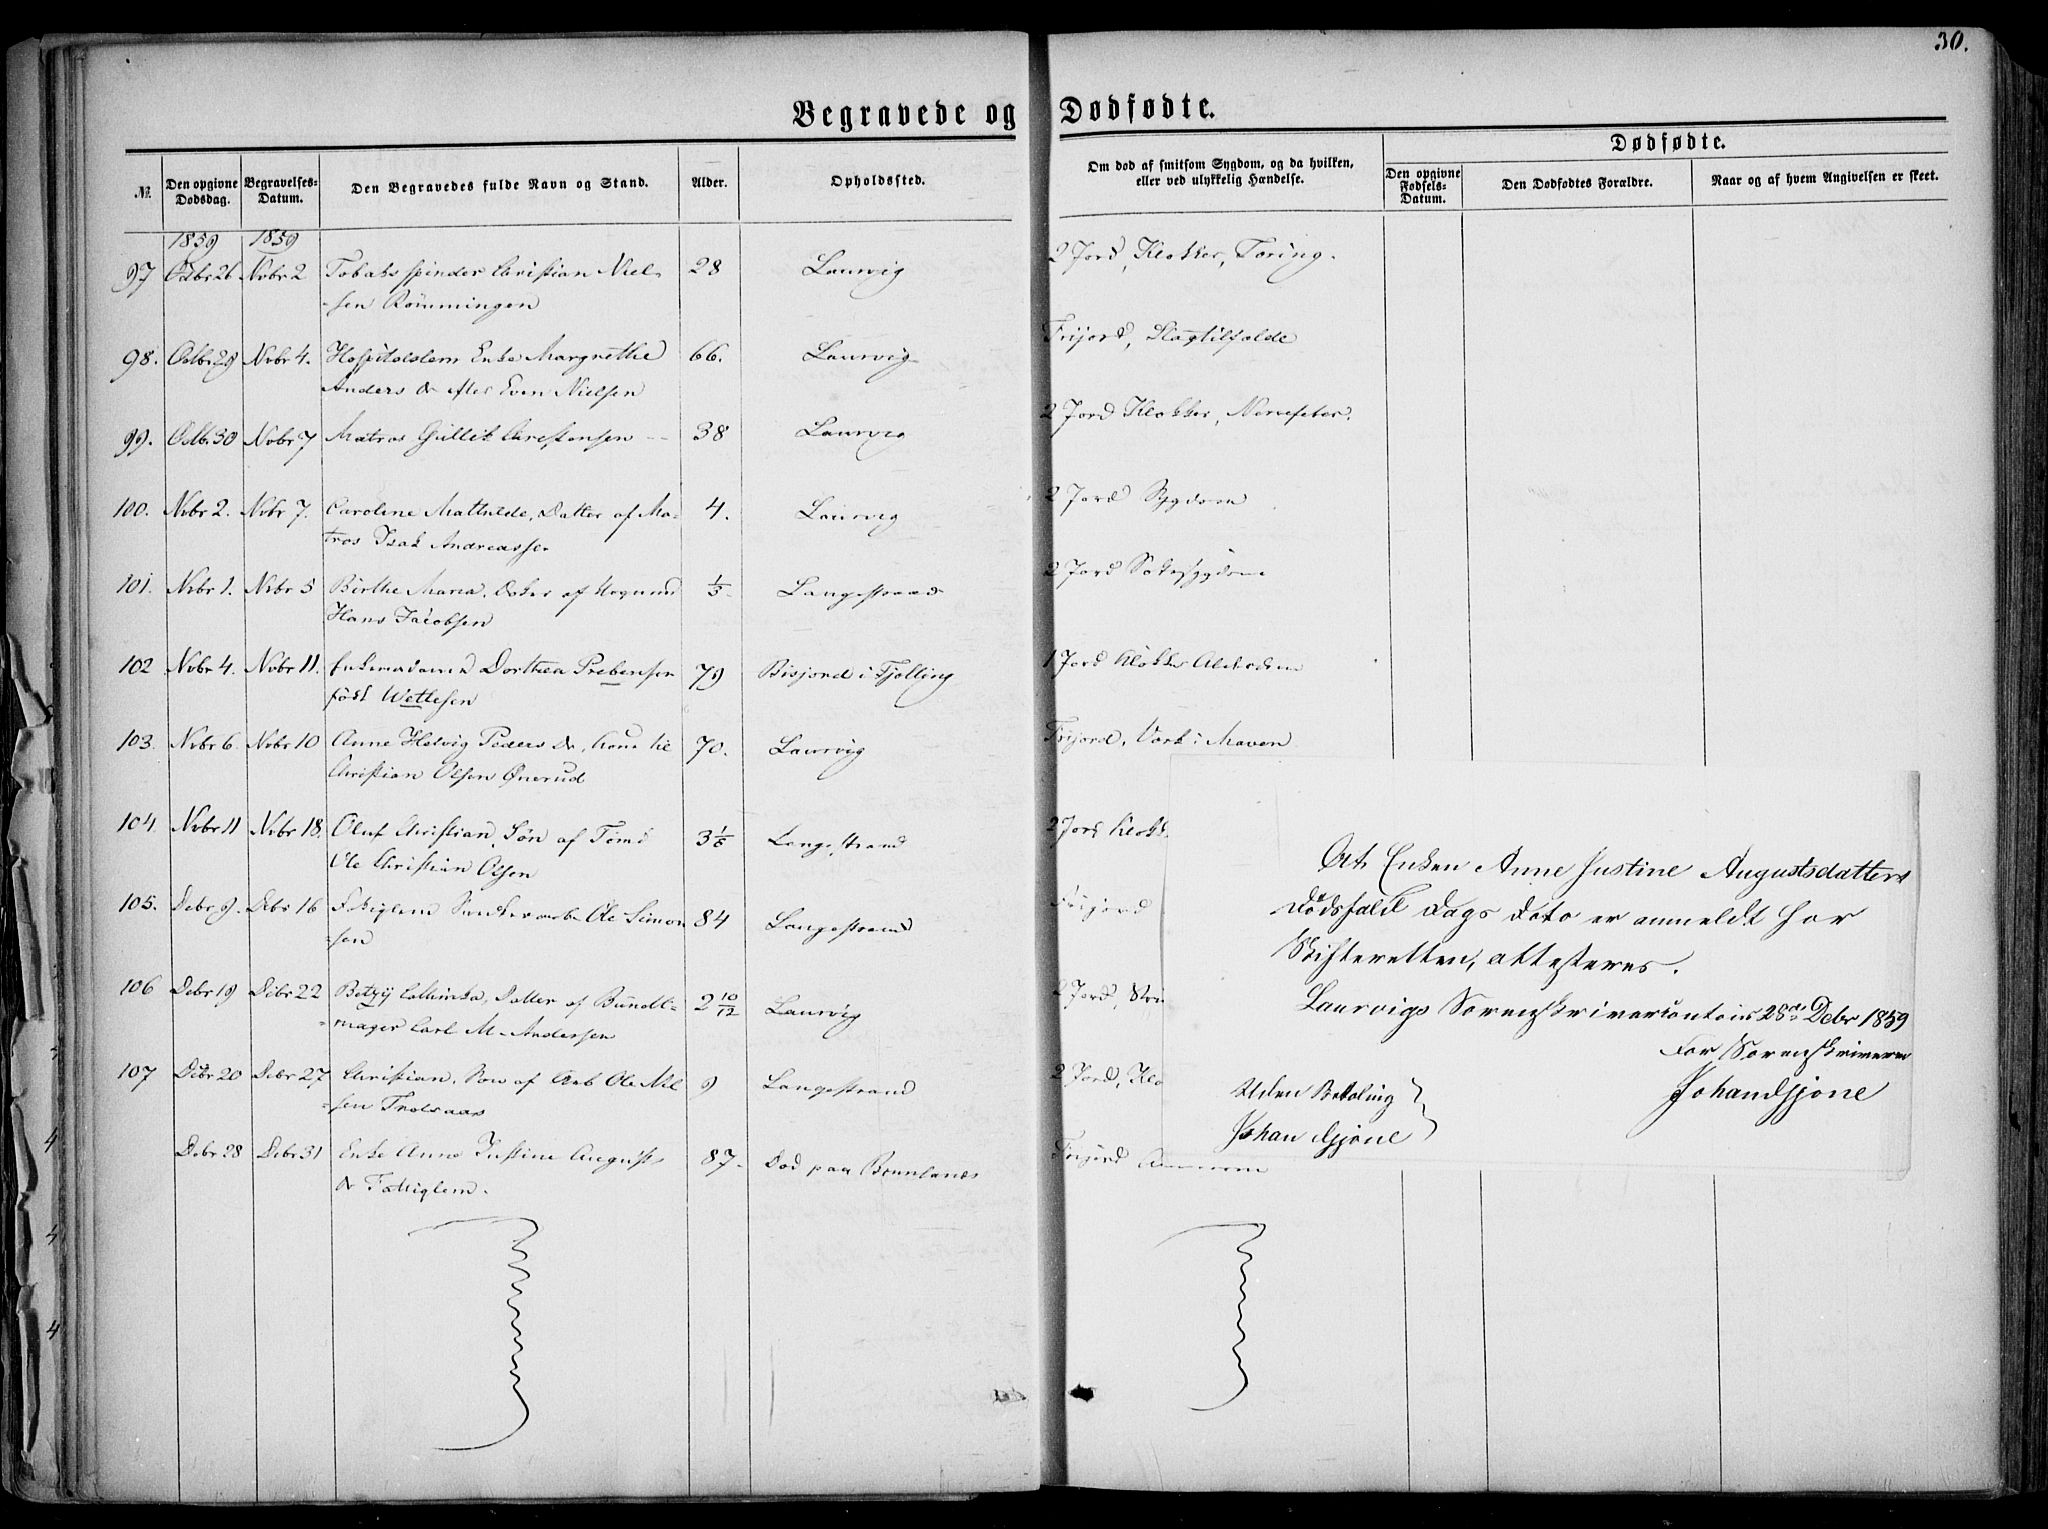 30.
Begravede og Dødfødte.
№.
Den opgivne Dødsdag.
Begravelses-Datum.
Den Begravedes fulde Navn og Stand.
Alder.
Opholdssted.
Om død af smitsom Sygdom, og da hvilken, eller ved ulykkelig Hændelse.
Dødfødte.
Den opgivne Fødsels-Datum.
Den Dødfødtes Forældre.
Naar og af hvem Angivelsen er skeet.
1859 1859
97 Octbr 26 Novbr 2 Tobaksspinder Christian Niel- 28 Laurvig 2 Jord, Klokker, Tæring.
-sen Rømmingen
98. Octbr 29 Novbr 4. Hospitalslem Enke Margrethe 66. Laurvig Frijord, Slagtilfælde
Anders Dr efter Even Nielsen
99. Octbr 30 Novbr 7 Matros Gullik Christensen 38 Laurvig 2 Jord Klokker,
100. Nvbr 2. Nvbr 7. Caroline Mathilde, Datter af Ma- 4. Laurvig 2 Jord
tros Isak Andreassen
101. Nvbr 1. Nvbr 5 Birthe Maria, Datter af 1/3 Langestrand 2 Jord
Hans Jacobsen
102 Nvbr 4. Nvbr 11. Enkemadame Dorthea Prebensen 79 Bisjord i Tjølling 1 Jord Klokker Alderdom
født Wettesen
103. Nvbr 6. Nvbr 10 Anne Helvig Peders Dr, Kone til 70. Laurvig Frijord, Værk i Maven
Christian Olsen Ønerud
104. Nvbr 11 Nvbr 18. Oluf Christian, Søn af Tømd 3 1/6 Langestrand 2 Jord Klokk
Ole Christian Olsen
105. Debr 9. Debr 16 Fattiglem Ole Simon 84 Langestrand Frijord
-sen
106 Debr 19 Debr 22 Betzy Cathinka, Datter af Bundt- 2 10/12 Laurvig 2 Jord, Stru
-mager Carl M. Anderssen
107 Debr 20 Debr 27 Christian, Søn af Arb Ole Niel 9 Langestrand 2 Jord, Klo
-sen Trolsaas
Debr 28 Debr 31 Enke Anne Justine Augusts 87. Død paa Brunlanes Frijord
Dr Fattiglem.
At Enken Anne Justine Augustsdatters
Dødsfald Dags Dato er anmeldt for
Skifteretten, attesteres.
Laurvigs Sorenskrivercontoir 28de Debr 1859
For Sorenskriveren
Johan Gjøne
Uden Betaling
Johan Gjøne